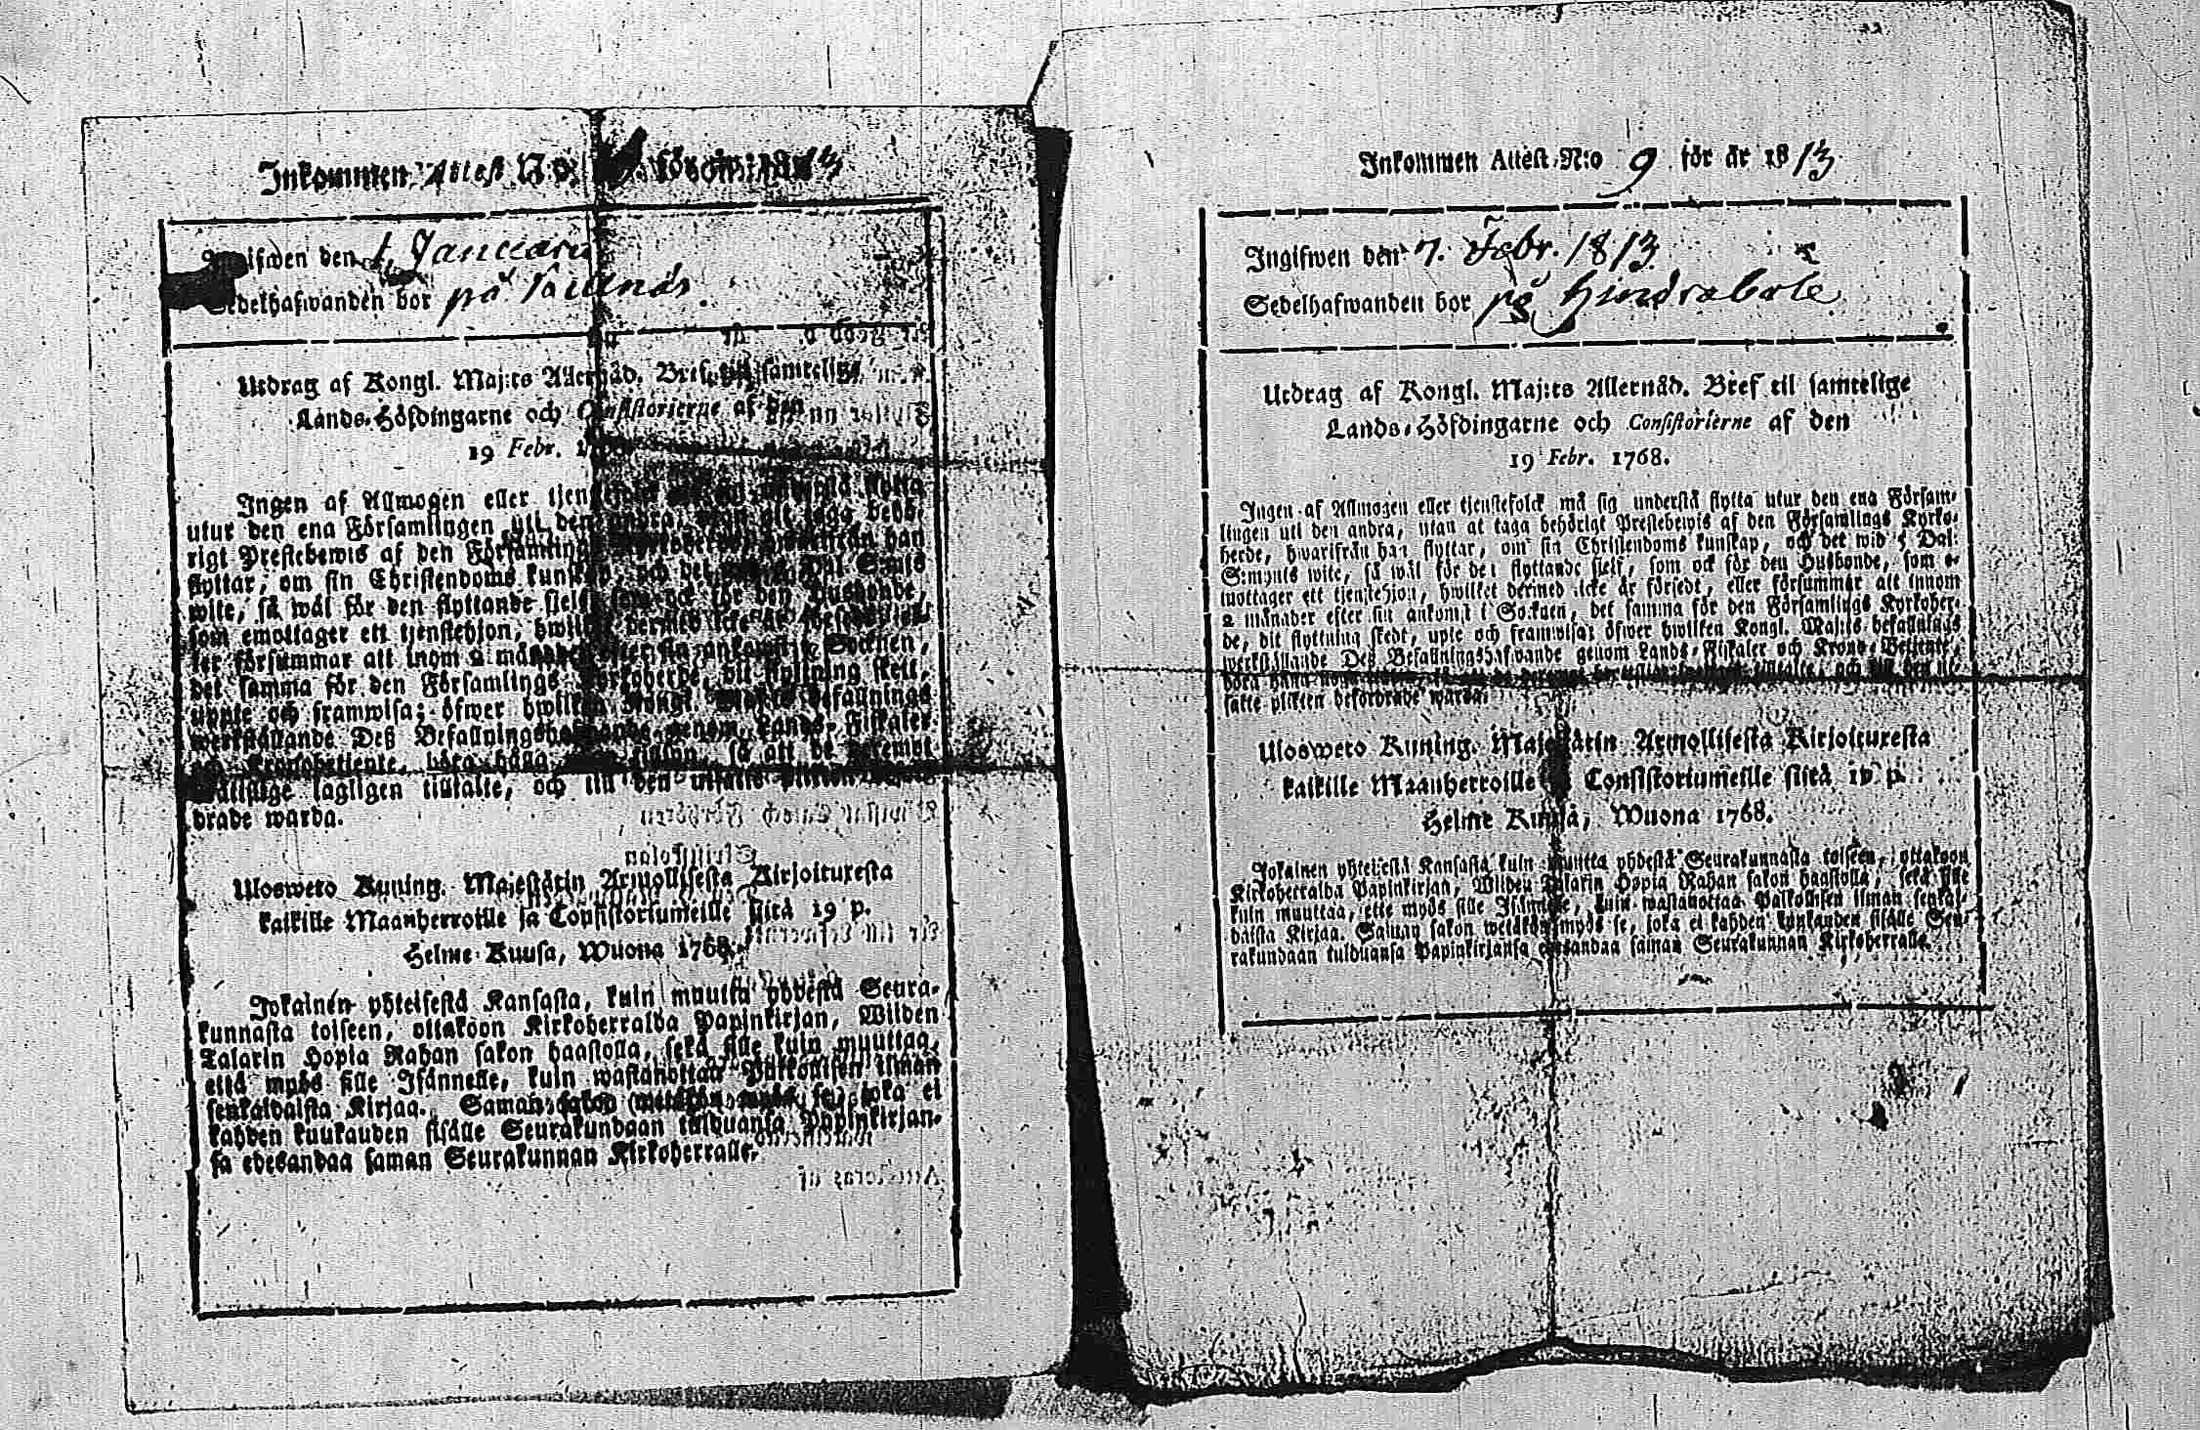 Inkommen Attest N:o för år 1813
Ingifwen den Januarii
Sedelhafwanden bor på
Utdrag af Kongl. Maj:ts Allernåd. Bref till samtelige
Lands-Höfdingarne och Consistorierne af den
19 Febr.
Ingen af Allmogen eller flytta
utur den ena Församlingen till den andra, utan att taga behö-
rigt Prestebewis af den Församlings han
flyttar, om sin Christendoms kunskap, och det Dal. S:mts
wite, så wäl för den flyttande sielf, som ock för den Husbonde,
som emottager ett tjenstehjon, hwilket dermed icke är
ler försummar att inom 2 månader efter sin ankomst i Socknen,
det samma för den Församlings Kyrkoherde, dit flyttning skett,
uppte och framwisa; öfwer hwilken Kongl. Maj:ts befallnings
werkställande Deß Befallningshafwande genom Lands-Fiskaler
och Kronobetjente, böra hålla så att de deremot
lagligen tilltalte, och till den utsatte plikten
drade warda.
Uloswero Kuning. Majestätin Armollisesta Kirjoituxesta
kaikille Maanherroille ja Consistoriumeille siitä 19 p.
Helme-Kuusa, Wuona 1768.
Jokainen yhteisestä Kansasta, kuin muutta yhdestä Seura-
kunnasta toiseen, ottakoon Kirkoherralda Papinkirjan, Wilden
Talarin Hopia Rahan sakon haastolla, sekä sille kuin muuttaa,
että myös sille Isännelle, kuin wastanottaa Palkollisen ilman
senkaldaista Kirjaa. Saman sakon wetäkön myös se, joka ei
kahden kuukauden sisälle Seurakundaan tulduansa Papinkirjan-
sa edesandaa saman Seurakunnan Kirkoherralle.
Inkommen Attest N:o 9 för år 1813
Ingifwen den 7. Febr. 1813
Sedelhafwanden bor på Hindrabole
Utdrag af Kongl. Maj:ts Allernåd. Bref til samtelige
Lands-Höfdingarne och Consistorierne af den
19 Febr. 1768.
Ingen af Allmogen eller tjenstefolck må sig understå flytta utur den ena Försam-
lingen till den andra, utan at taga behörigt Prestebewis af den Församlings Kyrko-
herde, hwarifrån han flyttar, om sin Christendoms kunskap, och det wid 5 Dal.
S:mynts wite, så wäl för den flyttande sielf, som ock för den Husbonde, som e-
mottager ett tjenstehjon, hwilket dermed icke är försedt, eller försummar att innom
2 månader efter sin ankomst i Socknen, det samma för den Församlings Kyrkoher-
de, dit flyttning skedt, upte och framwisa: öfwer hwilken Kongl. Maj:ts befallnings
werkställande Deß Befallningshafwande genom Lands-Fiskaler och Krono-Betjente,
böra hålla tilltalte, och till den ut-
satte plikten befordrade warda.
Uloswero Kuning. Majestätin Armollisesta Kirjoituxesta
kaikille Maanherroille Consistoriumeille siitä 19 p.
Helme Kuusa, Wuona 1768.
Jokainen yhteisestä Kansasta kuin muutta yhdestä Seurakunnasta toiseen, ottakoon
Kirkoherralda Papinkirjan, Wilden Talarin Hopia Rahan sakon haastolla, sekä sille
kuin muuttaa, ette myös sille Isännelle, kuin wastanottaa Palkollisen ilman senkal-
daista Kirjaa. Saman sakon wetäkön myös se, joka ei kahden kuukauden sisälle Seu-
rakundaan tulduansa Papinkirjansa edesandaa saman Seurakunnan Kirkoherralle.